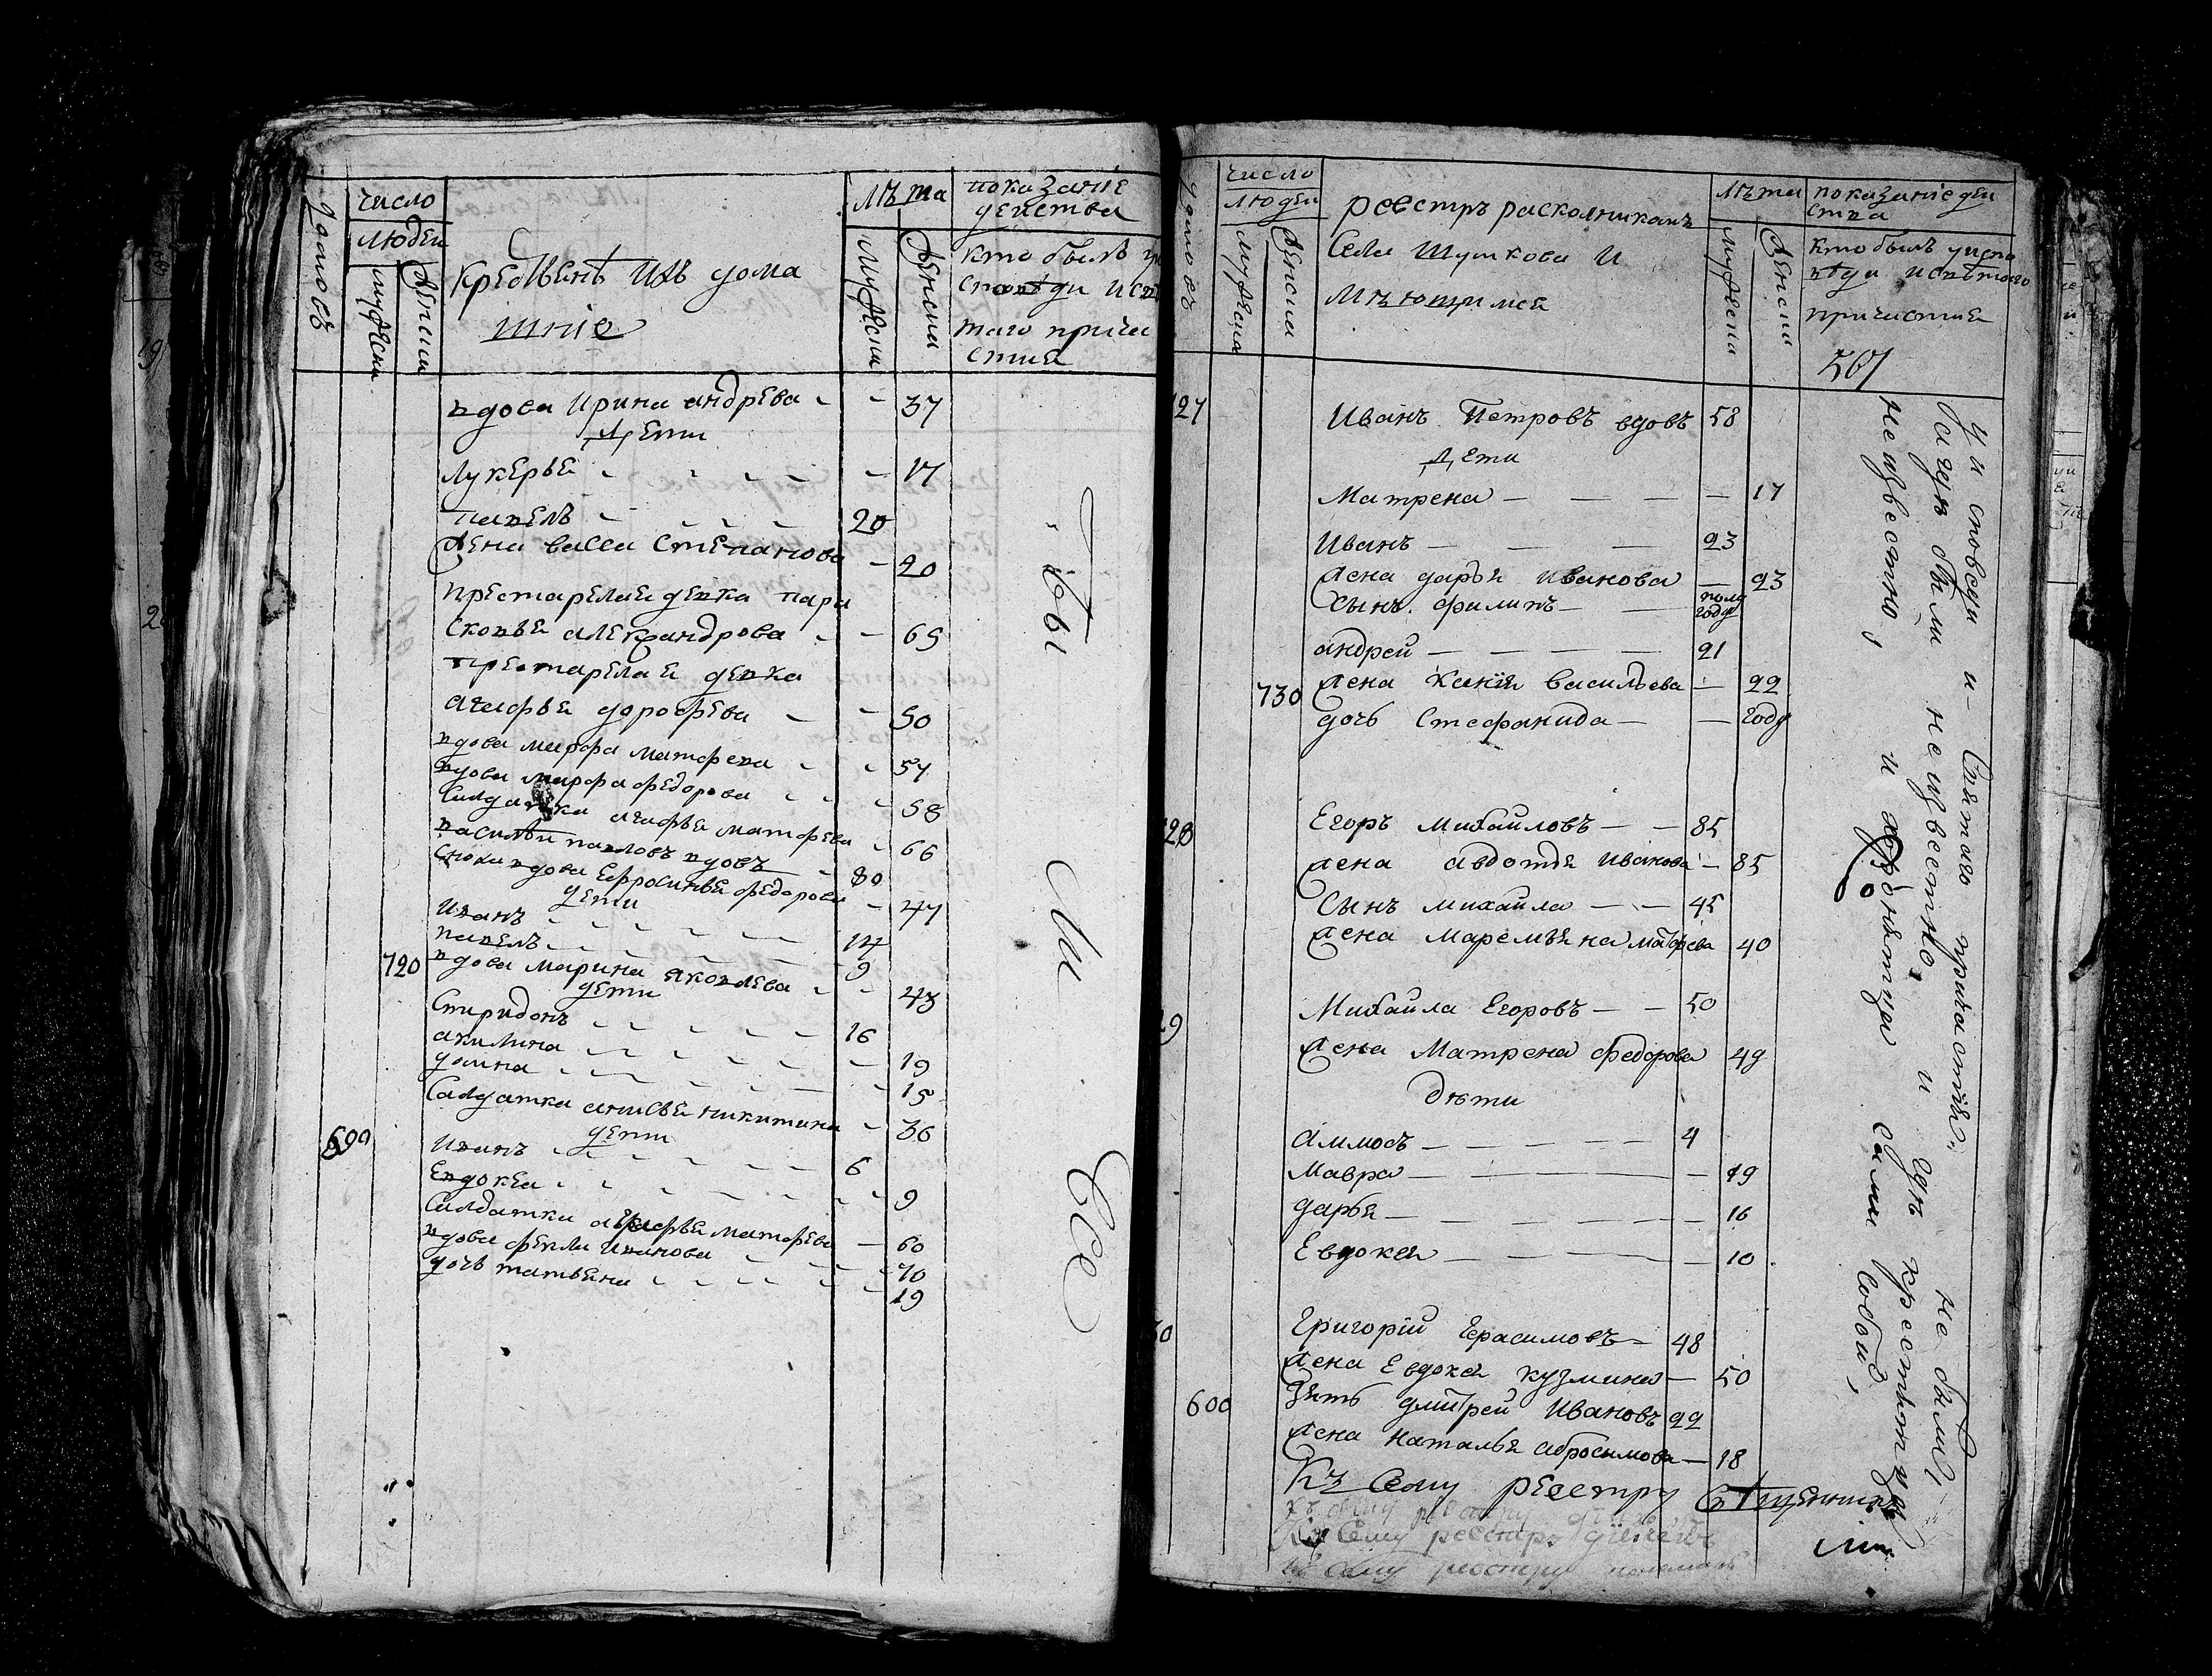 домовъ
число
людеи
мужеска
женска
Крестьянѣ ихъ дома
шніе
Лѣта
мужеска
женска
показаніе
действа
кто былъ у
споведи и свя
таго прича
стия
вдова Ирина андрѣева - - 37
дети
Лукерья - - - - - 17
павелъ - - - - 20
жена васса Степанова - 20
престарелая девка пара
сковья александрова - - 65
престарелая девка
агафья дорофѣева - - 50
вдова марфа матфеева - - 57
вдова марфа федорова - - 58
Салдатка агафья матфѣева - 66
василеи павловъ вдовъ - 80
сноха вдова ефросинья федорова - 47
дети
Иванъ - - - - - 14
павелъ - - - - - 9
720 вдова марина яковлева - - 43
дети
Спиридонъ - - - - - 16
акилина - - - - - 19
домна - - - - - 15
Салдатка анисья никитина - 36
дети
599
Иванъ - - - - - 6
Евдокея - - - - - 9
Салдатка агафья матфѣева - 60
вдова фекла иванова - - - 70
дочь татьяна - - - - - 19
Были Все
домовъ
число
людеи
мужеска
женска
реестръ расколникамъ
Села Шуткова и
мѣющимся
Лѣта
мужеска
женска
показаніе деи
ства
кто былъ у испо
вѣди и святого
причастия
507
127 Иванъ Петровъ вдовъ 58
дети
Матрена — — — — — 17
Иванъ — — — 23
жена дарья Иванова — 23
Сынъ филипъ — — полу
году
андрей — — — — 21
730 жена Ксенія васильева — 22
дочь Стефанида — — году
128 Егоръ Михайловъ — — 85
жена авдотья Иванова — 85
Сынъ михаила — — 45
жена маремьяна матфѣева 40
29 Михайла Егоровъ — — 50
жена Матрена федорова 49
дѣти
Аммосъ — — — — — 4
Мавра — — — — 19
дарья — — — — — 16
Евдокея — — — — 10
30 Григорій Герасимовъ — 48
жена Евдокея кузмина — 50
600 Зять дмитреи Ивановъ 22
жена наталья абросимова — 18
Къ Сему реестру Священникъ
къ сему реестру
Къ Сему реестру дьяконъ
къ сему реестру пономарь
у исповеди и Святаго причастия не были,
за чемъ были неизвестно, и чемъ крестятца
неизвестно, и хоронятца и сами собой,